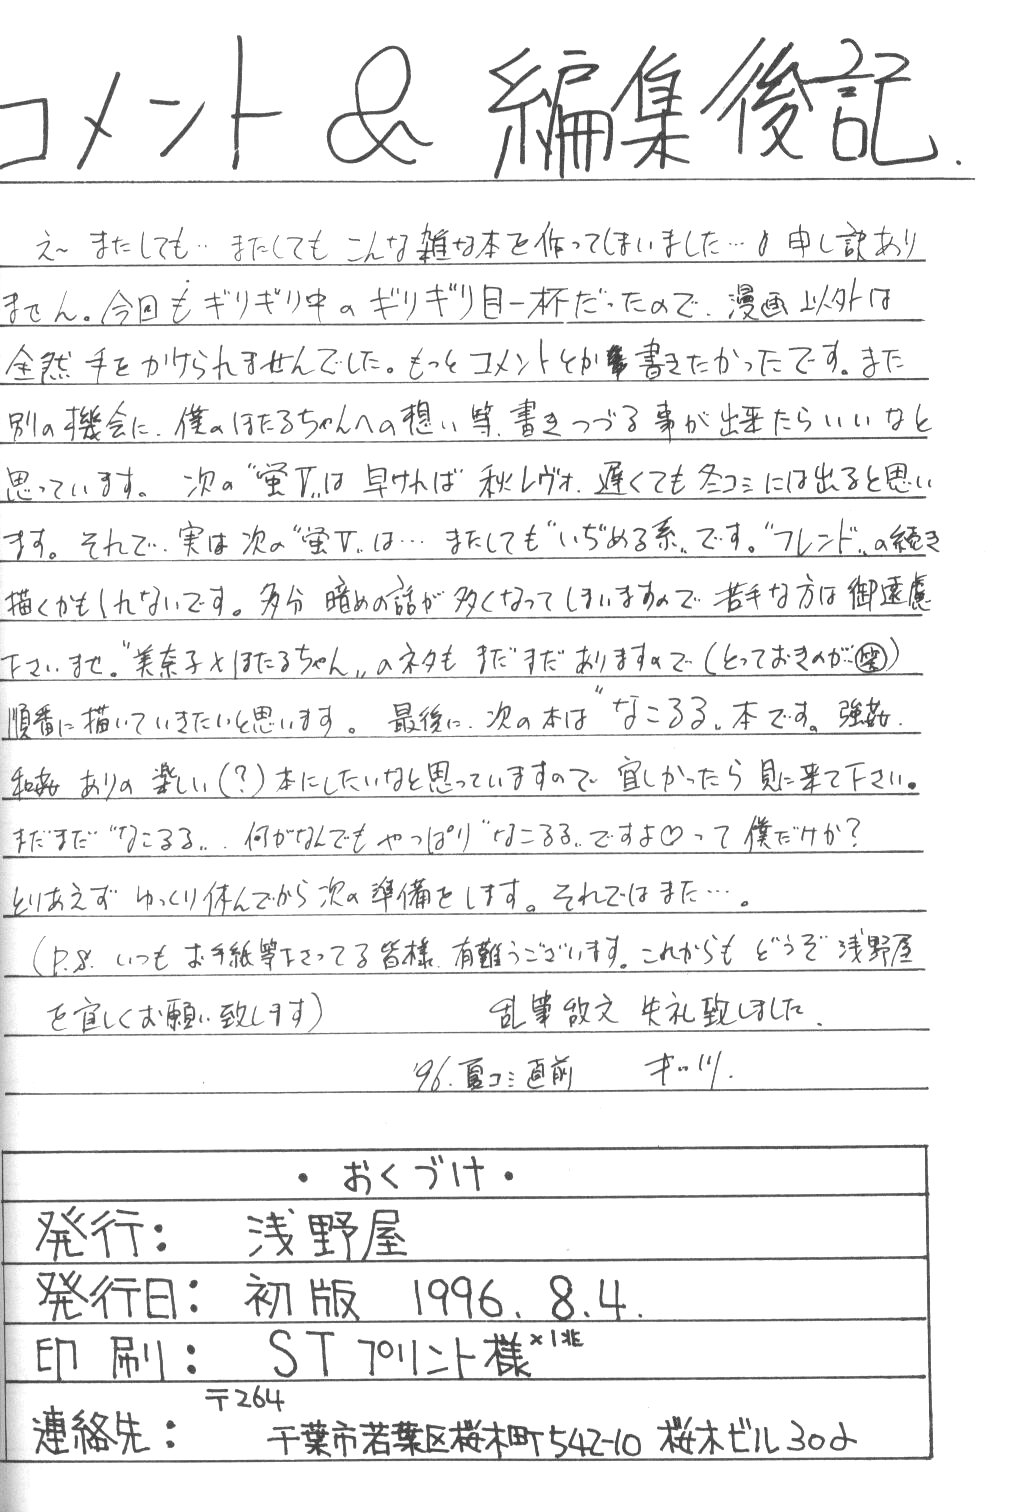 コメント & 編集後記.
え〜 またしても‥ またしても こんな 雑な本を 作ってしまいました… 申し訳あり
ません。今回も ギリギリ中の ギリギリ目一杯だったので、漫画以外は
全然 手を かけられませんでした。もっと コメントとか 書きたかったです。また
別の機会に、僕のほたるちゃんへの想い等、書きつづる事が出来たらいいなと
思っています。 次の “蛍Ⅴ„は 早ければ 秋レヴォ、遅くても冬コミには出ると思い
ます。それで、実は次の“蛍Ⅴ„は… またしても“いぢめる系„です。“フレンド„の続き
描くかもしれないです。多分 暗めの話が 多くなってしまいますので 苦手な方は 御遠慮
下さいませ。“美奈子×ほたるちゃん„のネタも まだまだ ありますので(とっておきのが‥㊗)
順番に描いていきたいと思います。 最後に、次の本は “なこるる„本です。強姦、
和姦 ありの 楽しい(?)本にしたいなと思っていますので 宜しかったら 見に来て下さい。
まだまだ “なこるる„、何がなんでも やっぱり“なこるる„ですよ♡って 僕だけか?
とりあえず ゆっくり休んでから次の準備をします。それではまた…。
(P.S. いつも お手紙等下さってる皆様、有難うございます。これからも どうぞ 浅野屋
を宜しくお願い致します) 乱筆散文 失礼致しました.
'96.夏コミ直前 キッツ.
・おくづけ・
発行: 浅野屋
発行日: 初版 1996.8.4.
印刷: STプリント様
〒264
連絡先: 千葉市若葉区桜木町542-10 桜木ビル302